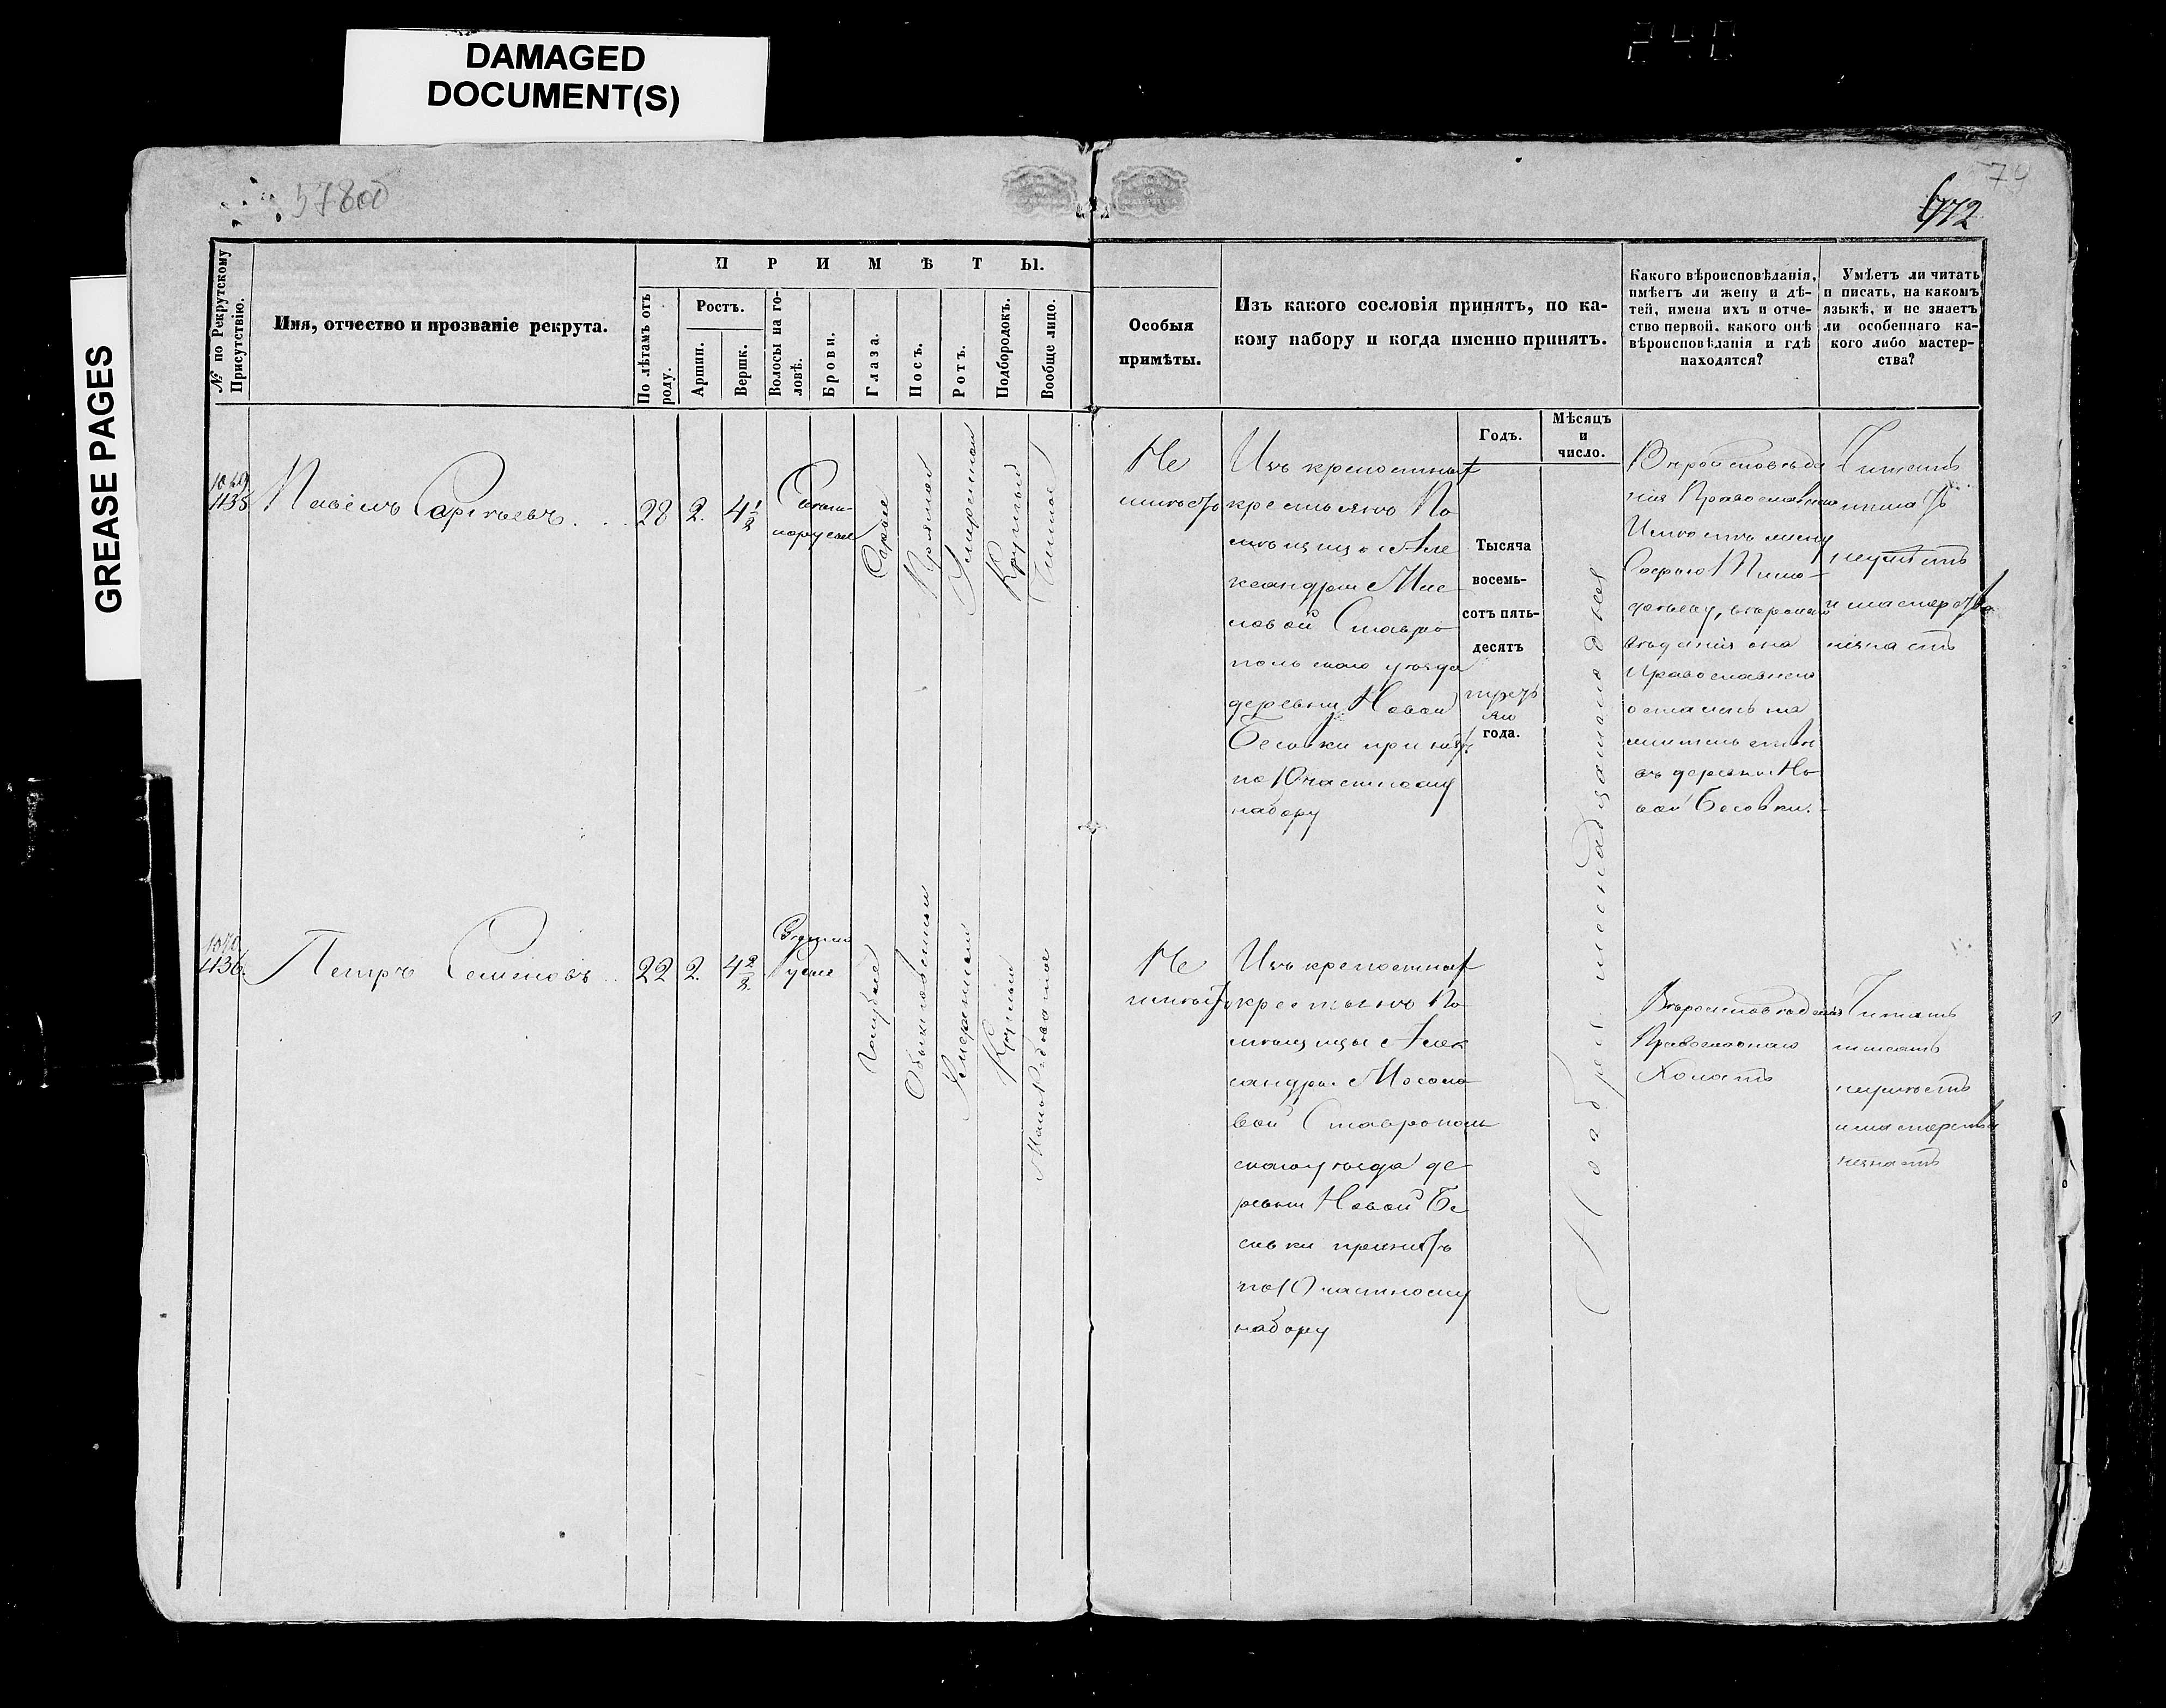 DAMAGED
DOCUMENT(S)
GREASE PAGES
240
578об
79
672
№ по Рекрутскому
Присутствію.
Имя, отчество и прозваніе рекрута.
ПРИМѢТЫ.
По лѣтамъ отъ
роду.
Ростъ.
Аршин.
Вершк.
Волосы на го-
ловѣ.
Брови.
Глаза.
Носъ.
Ротъ.
Подбородокъ.
Вообще лицо.
Особыя
примѣты.
Изъ какого сословія принятъ, по ка-
кому набору и когда именно принятъ.
Какого вѣроисповѣданія,
имѣетъ ли жену и дѣ-
тей, имена ихъ и отче-
ство первой, какого онѣ
вѣроисповѣданія и гдѣ
находятся?
Умѣетъ ли читать
и писать, на какомъ
языкѣ, и не знаетъ
ли особеннаго ка-
кого либо мастер-
ства?
Годъ.
Мѣсяцъ
и
число.
1069
1135
Павелъ Сергѣевъ
28
2.
4 1/8
Свѣтло-
норусые
Сѣрые
Прямой
Умѣренной
Круглый
Чистое
Не
имѣетъ
Изъ крепостныхъ
крестьянъ По
мѣщицы Але
ксандры Мас
ловой Ставро
польского уѣзда
деревни Новой
Бесовки принятъ
по 10 частному
набору
Тысяча
восемь-
сотъ пять-
десятъ
третья
го
года.
Ноября шеснадцатого дня
Вѣроисповѣда
нія Православнаго
Имѣетъ жену
Софью Тимо-
фѣеву, вѣроиспо
вѣданія она
Православнаго
осталась на
жительствѣ
въ деревни Но
вой Бесовки.
Читать
писать
неумѣетъ
и мастерства
незнаетъ
1070
1136
Петръ Семеновъ
22
2.
4 2/8
русые
Голубые
Обыкновенной
Умеренной
Круглый
Малорябоватое
Не
имѣетъ
Изъ крепостныхъ
крестьянъ По
мѣщицы Алек
сандры Мосоло
вой Ставрополь
скаго уѣзда де
ревни Новой Бе
совки принятъ
по 10 частному
набору
Вѣроисповѣданія
Православнаго
Холостъ
Читать
писать
неумѣетъ
и мастерства
незнаетъ